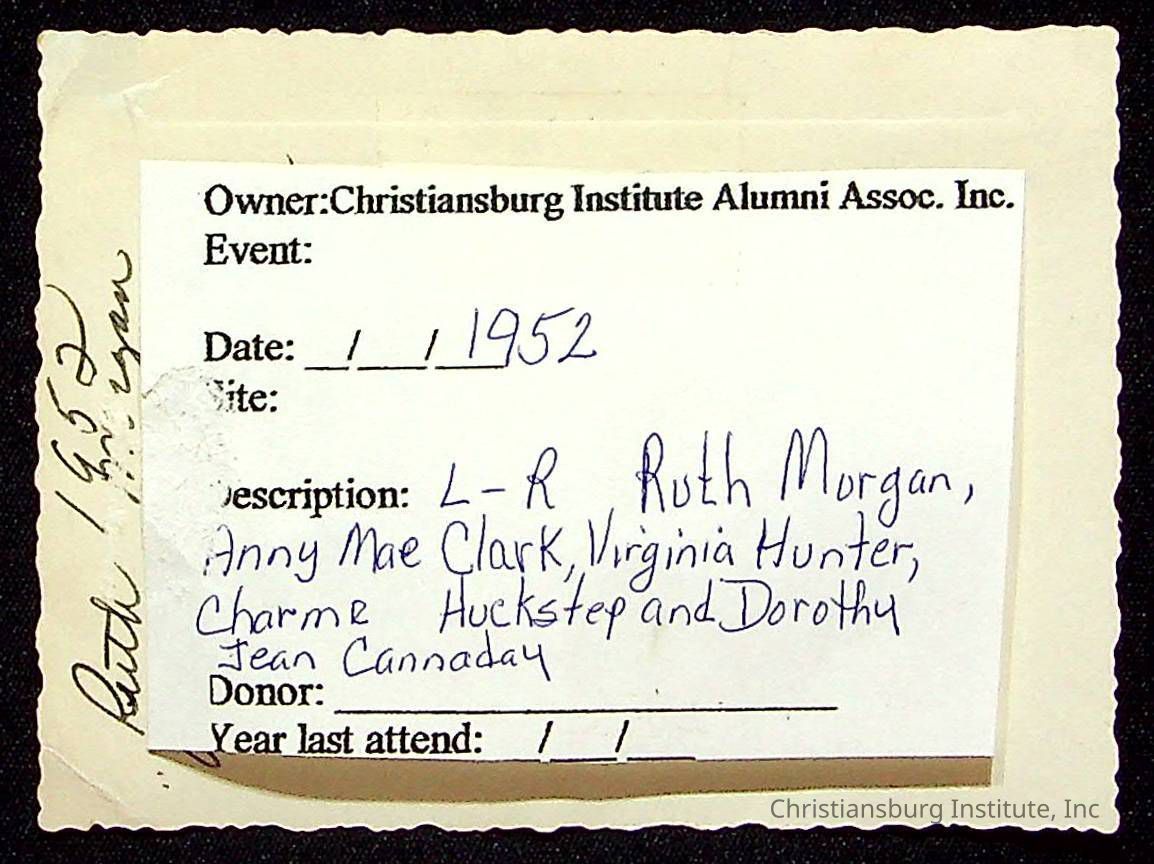 Owner:Christiansburg Institute Alumni Assoc. Inc.
Event:
Date: __/___/___1952
Site:
Description: L-R Ruth Morgan,
Anny Mae Clark, Virginia Hunter,
Charme Huckstep and Dorothy
Jean Cannaday
Donor: ____________________
Year last attend: __/___/___
Ruth 1952
Christiansburg Institute, Inc